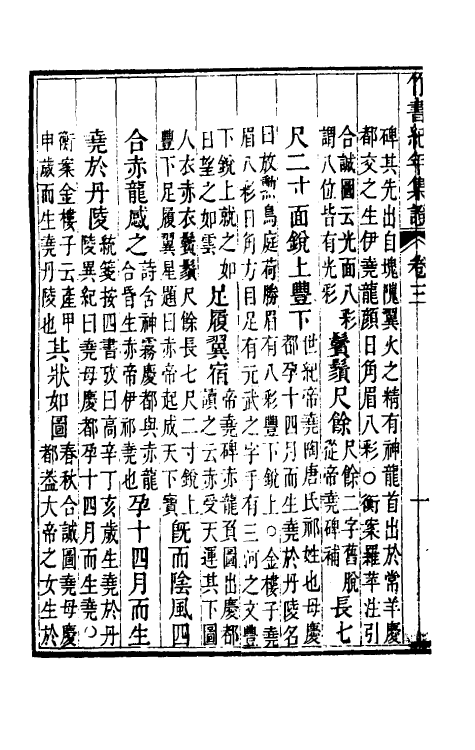 竹書紀年集證 卷三
碑其先出自塊隗翼火之精有神龍首出於常羊慶
都交之生伊堯龍顏日角眉八彩○衡案羅苹注引
合誠圖云光面八彩
謂八位皆有光彩
鬢鬚尺餘
尺餘二字舊脫
從帝堯碑補
長七
尺二寸面銳上豐下
世紀帝堯陶唐氏祁姓也母慶
都孕十四月而生堯於丹陵名
曰放勲鳥庭荷勝眉有八彩豐下銳上○金樓子堯
眉八彩日角方目足有元武之字手有三河之文豐
下銳上就之如
日望之如雲
足履翼宿
帝堯碑赤龍負圖出慶都
讀之云赤受天運其下圖
人衣赤衣鬢鬚尺餘長七尺二寸銳上
豐下足履翼星題曰赤帝起成天下寶
旣而陰風四
合赤龍感之
詩含神霧慶都與赤龍
合昏生赤帝伊祁堯也
孕十四月而生
堯於丹陵
統箋按四書攷曰高辛丁亥歲生堯於丹
陵異紀曰堯母慶都孕十四月而生堯○
衡案金樓子云產甲
申歲而生堯丹陵也
其狀如圖
春秋合誠圖堯母慶
都葢大帝之女生於